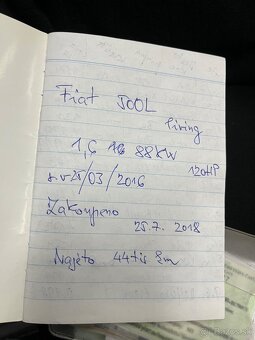 Fiat 500L
living
1,6 16 88KW
120HP
r.v 21/03/2016
Zakoupeno
25.7. 2018
Najeto 44tis km